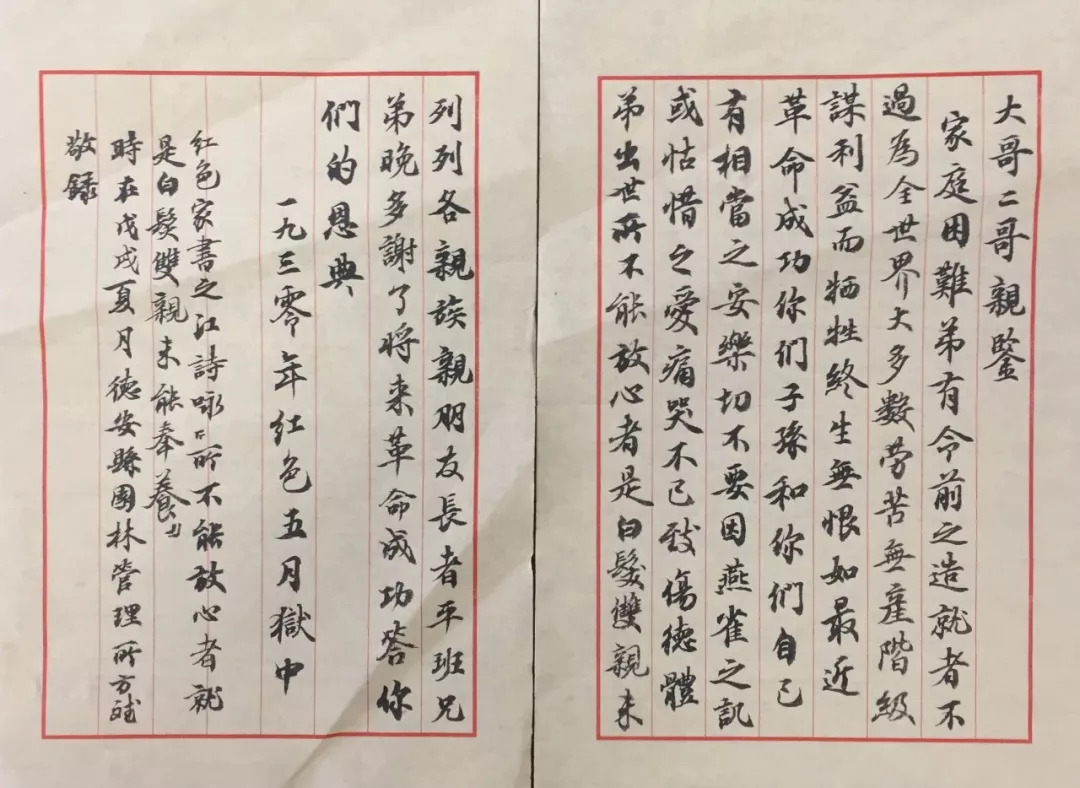 大哥二哥親鑒
家庭困難弟有今前之造就者不
過為全世界大多數勞苦無產階級
謀利益而牺牲終生無恨如最近
革命成功你們子孫和你們自己
有相當之安樂切不要因燕雀之訊
或怙惜之愛痛哭不已致傷德體
弟出世所不能放心者是白髮雙親未
列列各親族親朋友長者平班兄
弟晚多謝了將来革命成功答你
們的恩典
一九三零年红色五月獄中
红色家書之江詩咏「所不能放心者就
是白髮雙親未能奉養」
時在戊戌夏月德安縣園林管理所方
敬錄